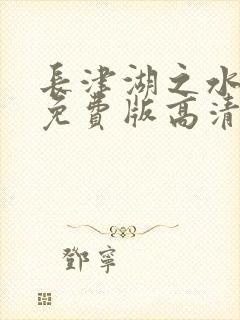 長津湖之水
免費版高清
鄧寧